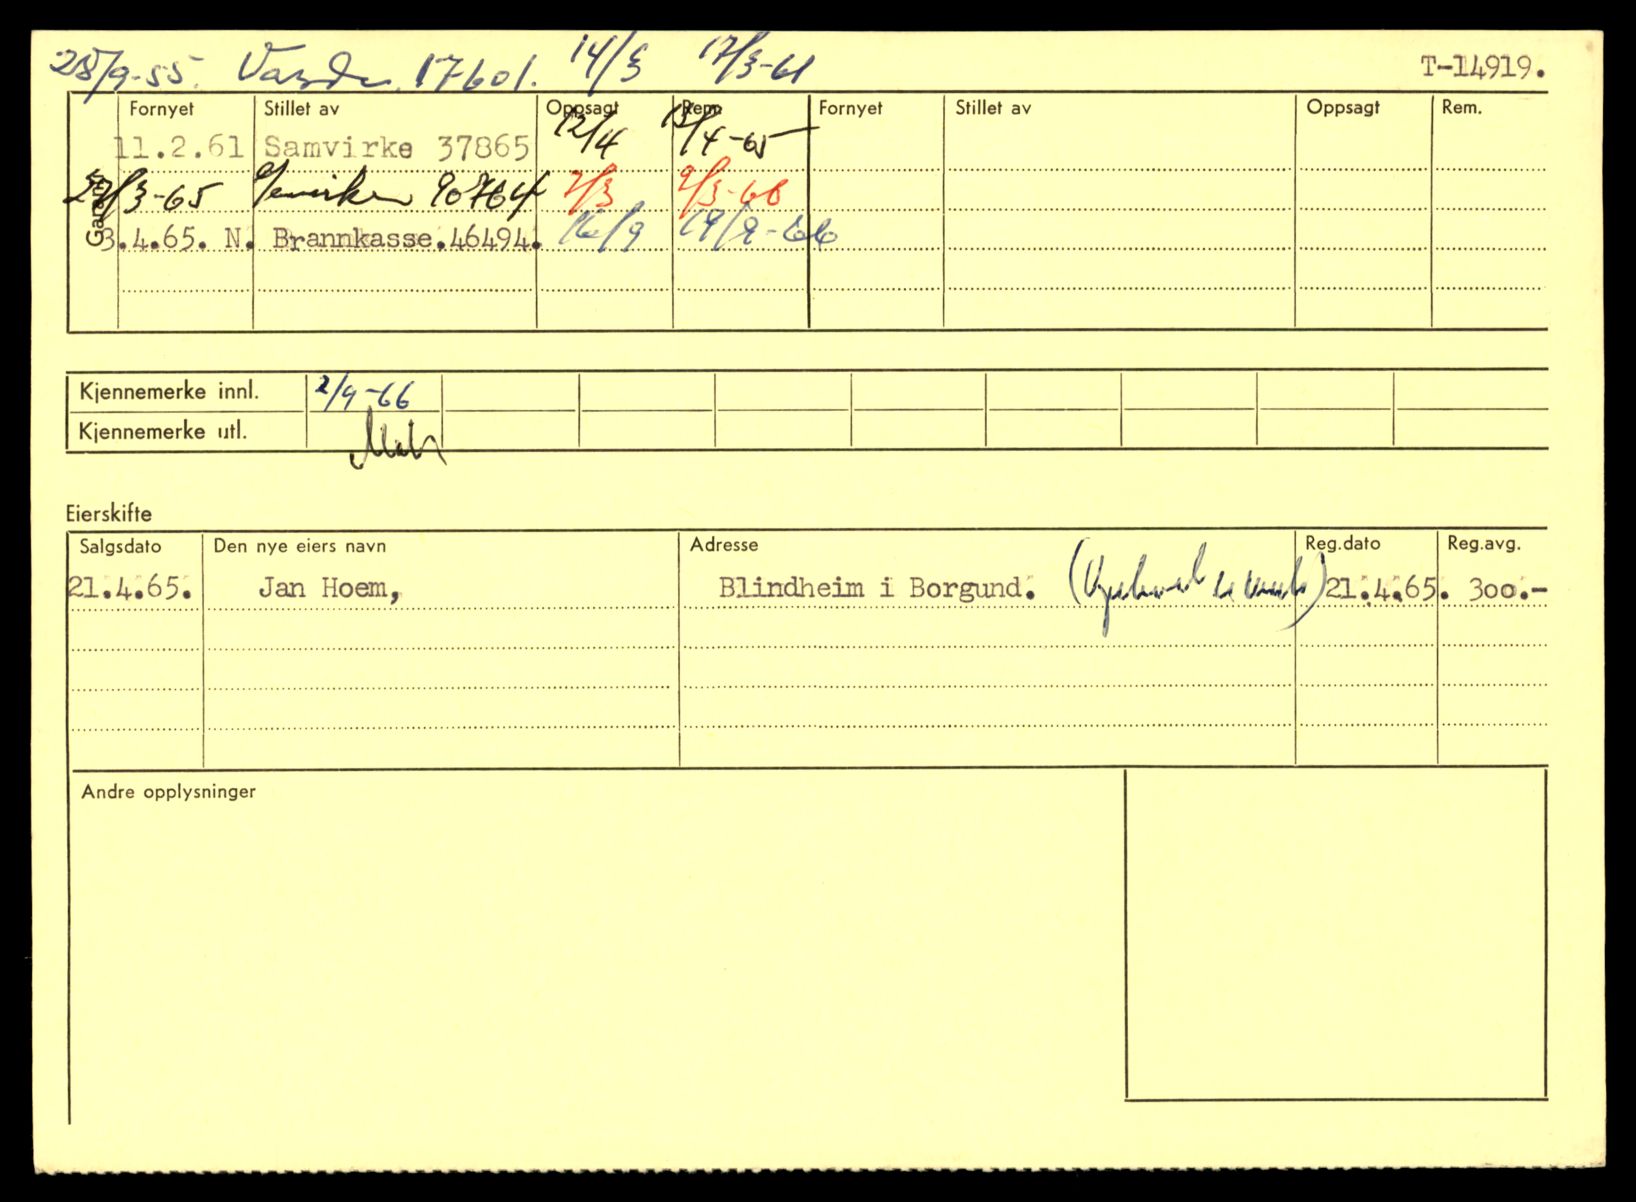 28/9-55. Varde. 17601. 14/3 17/3-61
T-14919.
Garanti Fornyet Stillet av Oppsagt Rem. Fornyet Stillet av Oppsagt Rem.
11.2.61 Samvirke 37865 12/4 15/4-65
27/3-65 90764 2/3 9/3-66
3.4.65. N. Brannkasse.46494. 16/9 19/9-66
Kjennemerke innl. 2/9-66
Kjennemerke utl.
Eierskifte
Salgsdato Den nye eiers navn Adresse Reg.dato Reg.avg.
21.4.65. Jan Hoem, Blindheim i Borgund. 21.4.65. 300.-
Andre opplysninger